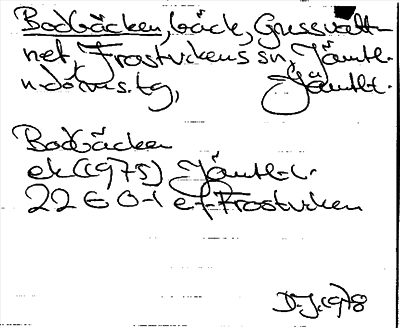 Bodbäcken, bäck, Gussvatt-
net, Frostvikens sn, Jämtl.
n.domss.tg, Jämtl.
Bodbäcken
ek (1975) Jämtl.l.
22 E 0-1 e-f Frostviken
D.J. 1978